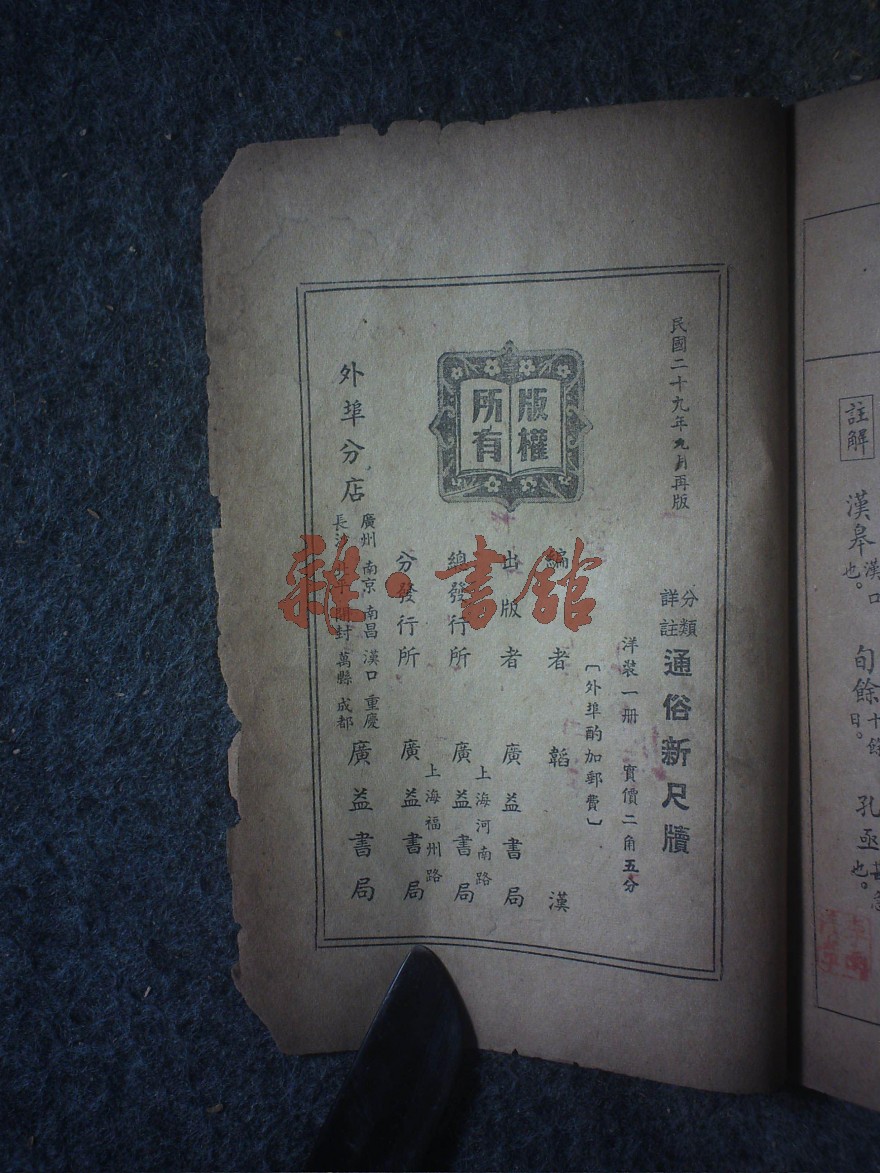 民國二十九年九月再版
分類
詳註
通俗新尺牘
洋裝一册 實價二角五分
〔外埠酌加郵費〕
版權
所有
編者 韜漢
出版者 廣益書局
總發行所 上海河南路 廣益書局
分發行所 上海福州路 廣益書局
外埠分店
廣州 南京 南昌 漢口 重慶
長沙 開封 萬縣 成都
廣益書局
雜·書館
註解
漢皋 漢口
也。
旬餘 十餘
日。
孔亟
也。